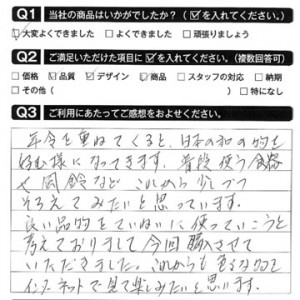 Q1 当社の商品はいかがでしたか？（☑を入れてください。）
☑大変よくできました □よくできました □頑張りましょう
Q2 ご満足いただけた項目に☑を入れてください。（複数回答可）
□価格 ☑品質 ☑デザイン ☑商品 □スタッフの対応 □納期
□その他（ ）□特になし
Q3 ご利用にあたってご感想をおよせください。
年令を重ねてくると、日本の和の物を
好む様になってきます。普段使う食器
や風鈴など これから少しづつ
そろえてみたいと思っています。
良い品物をていねいに使っていこうと
考えておりまして今回購入させて
いただきました。これからも色々な物を
インターネットで見て楽しみたいと思います。